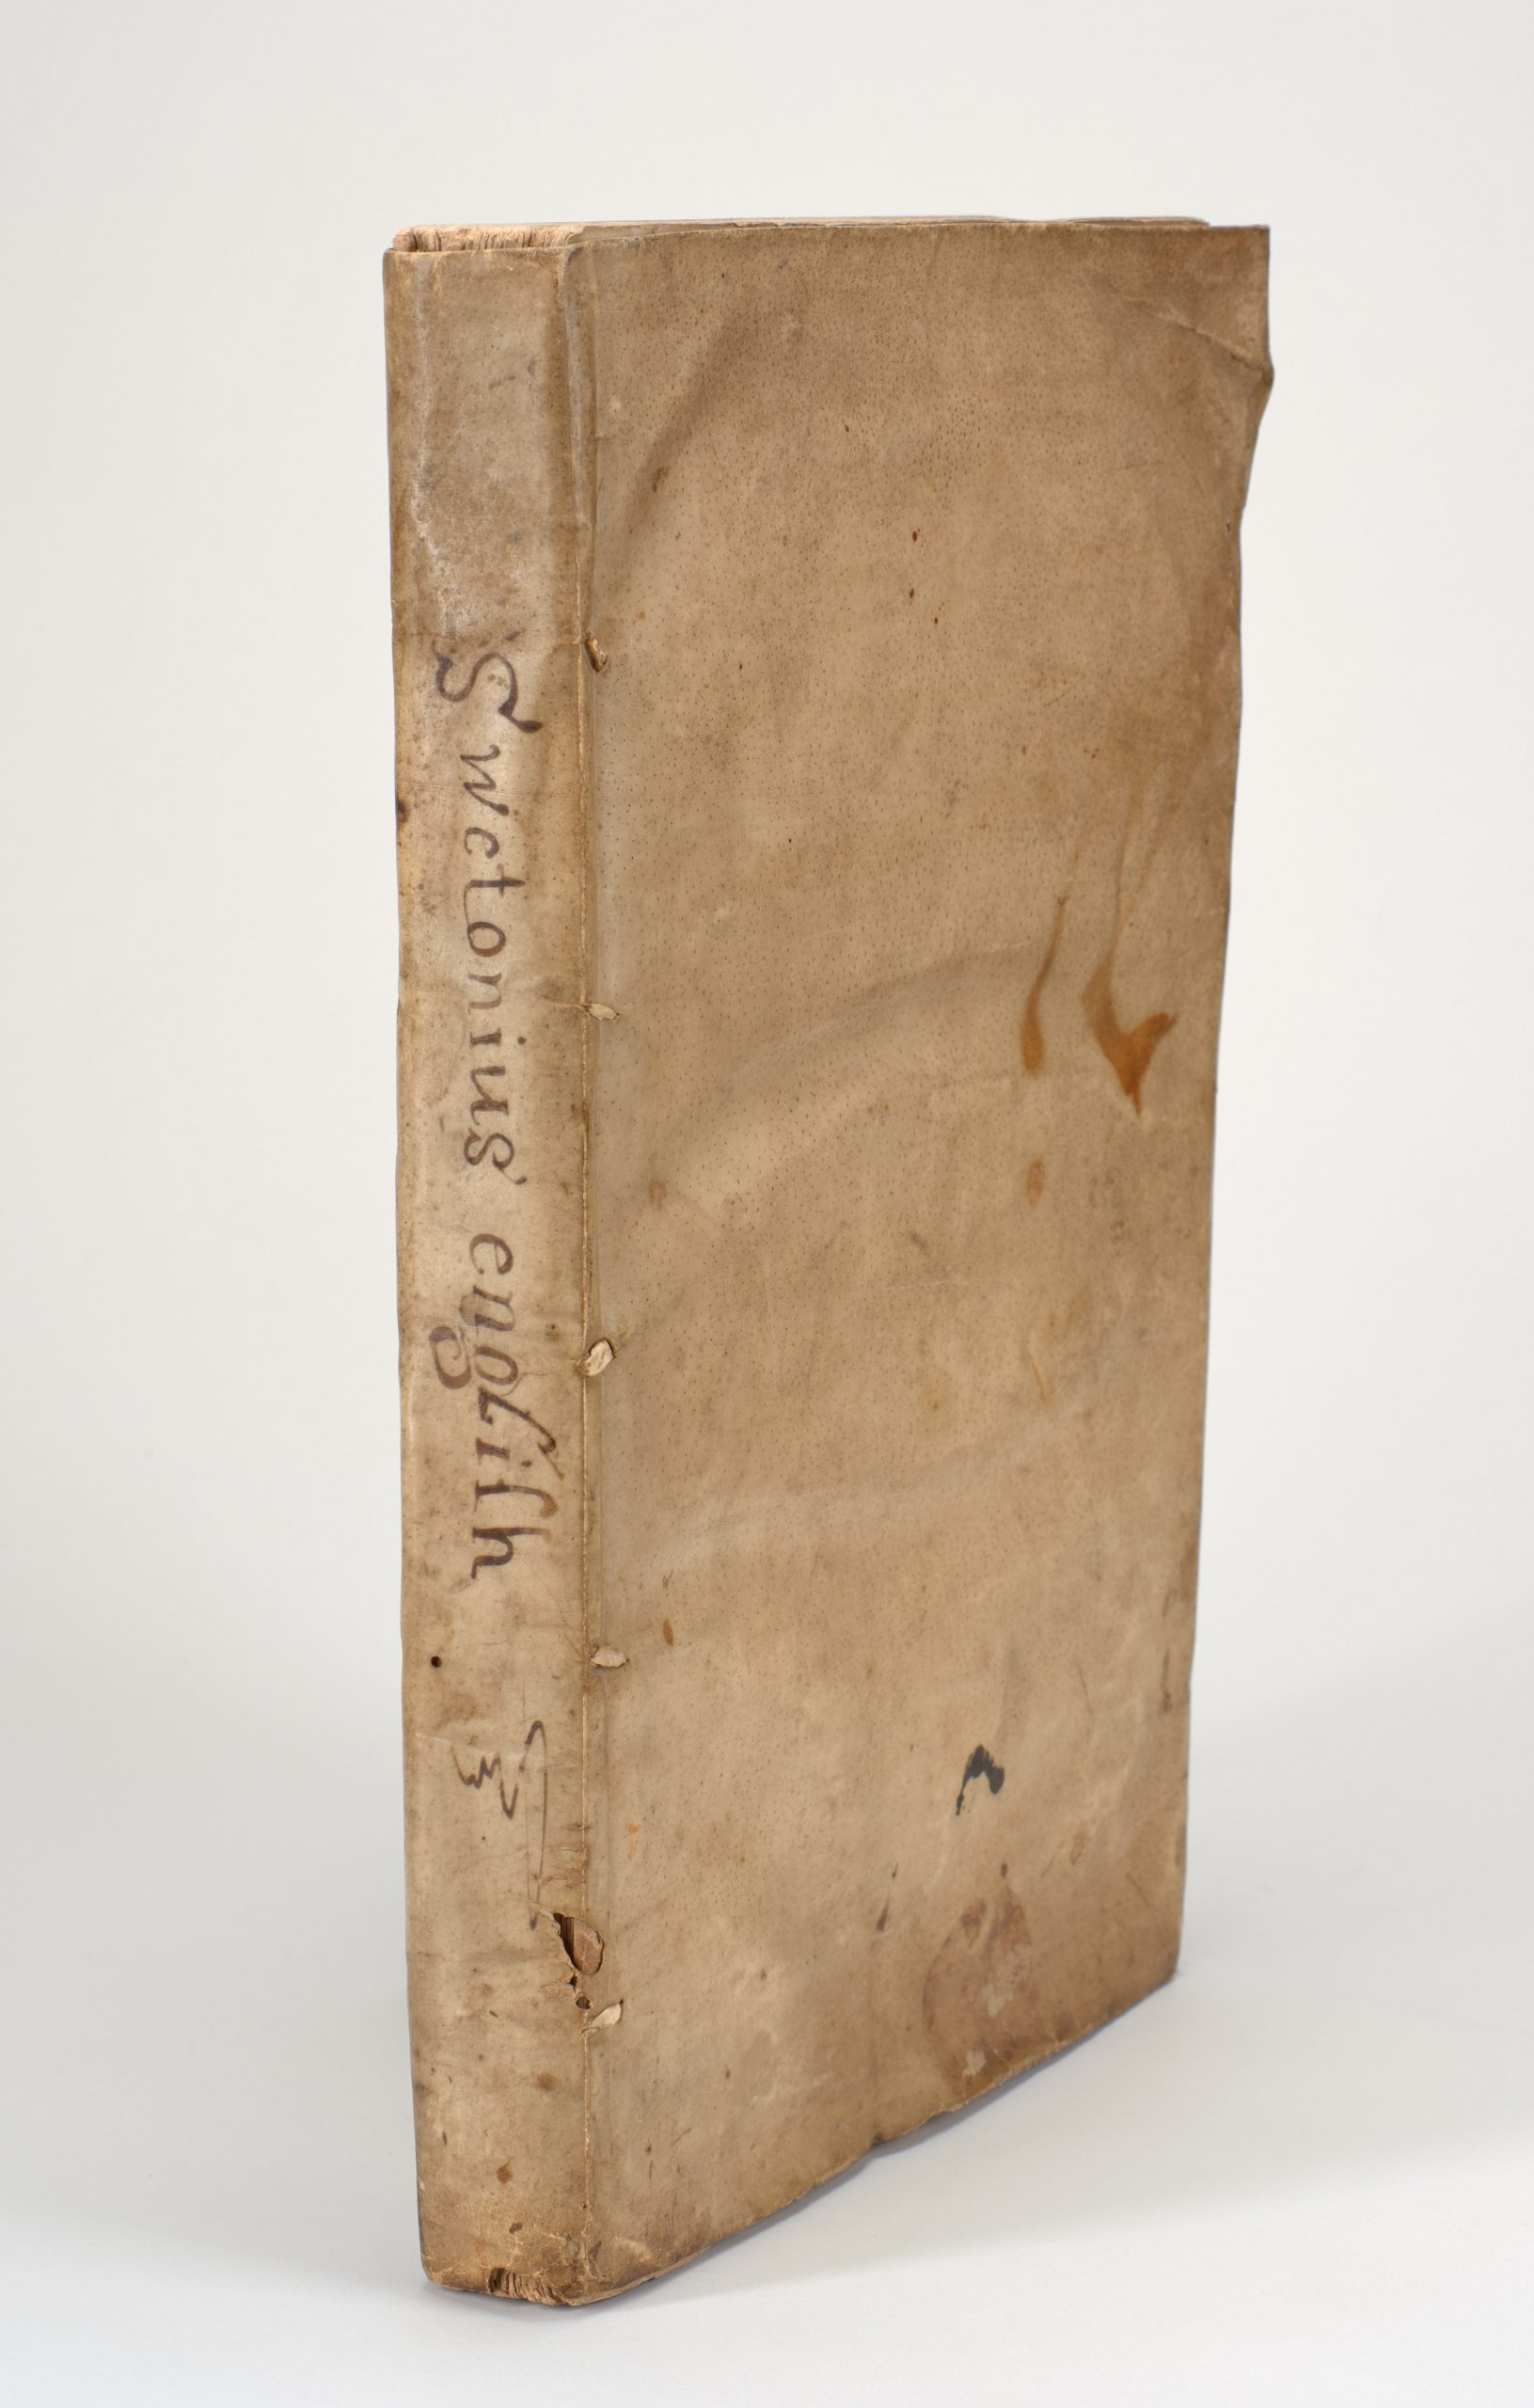 Swetonius engliſh